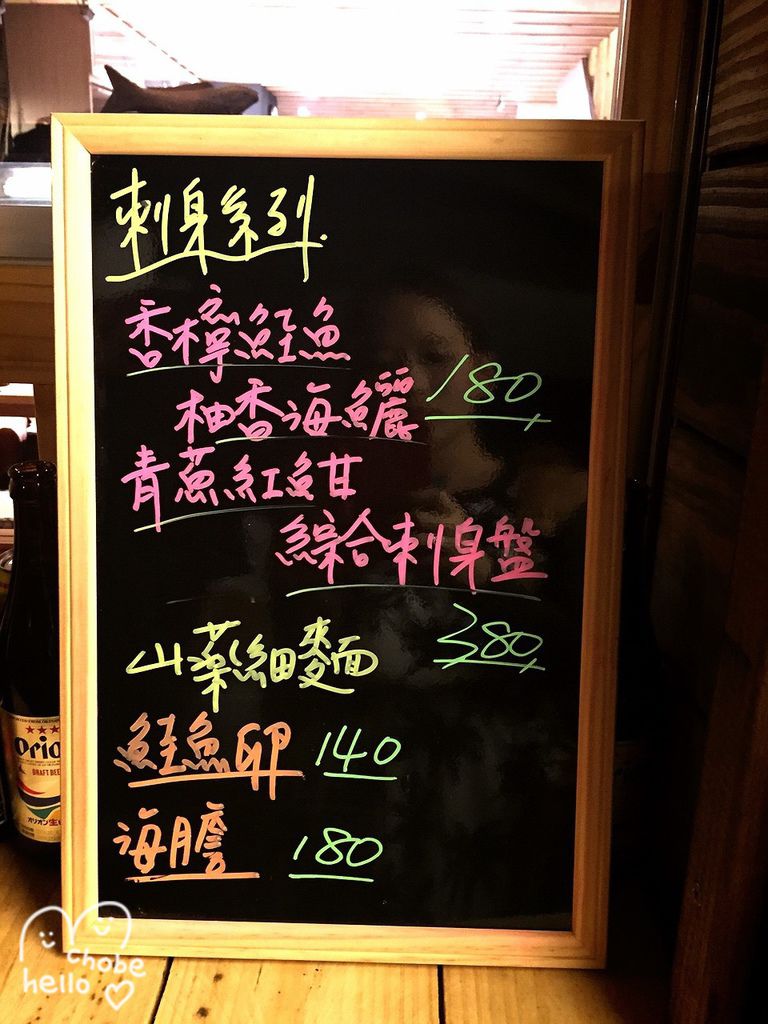 刺身系列
香檸鮭魚
柚香海鱺 180
青蔥紅魽
綜合刺身盤
380
山藥細麵
鮭魚卵 140
海膽 180
orio
DRAFT BEE
オリオン生
chobe
hello